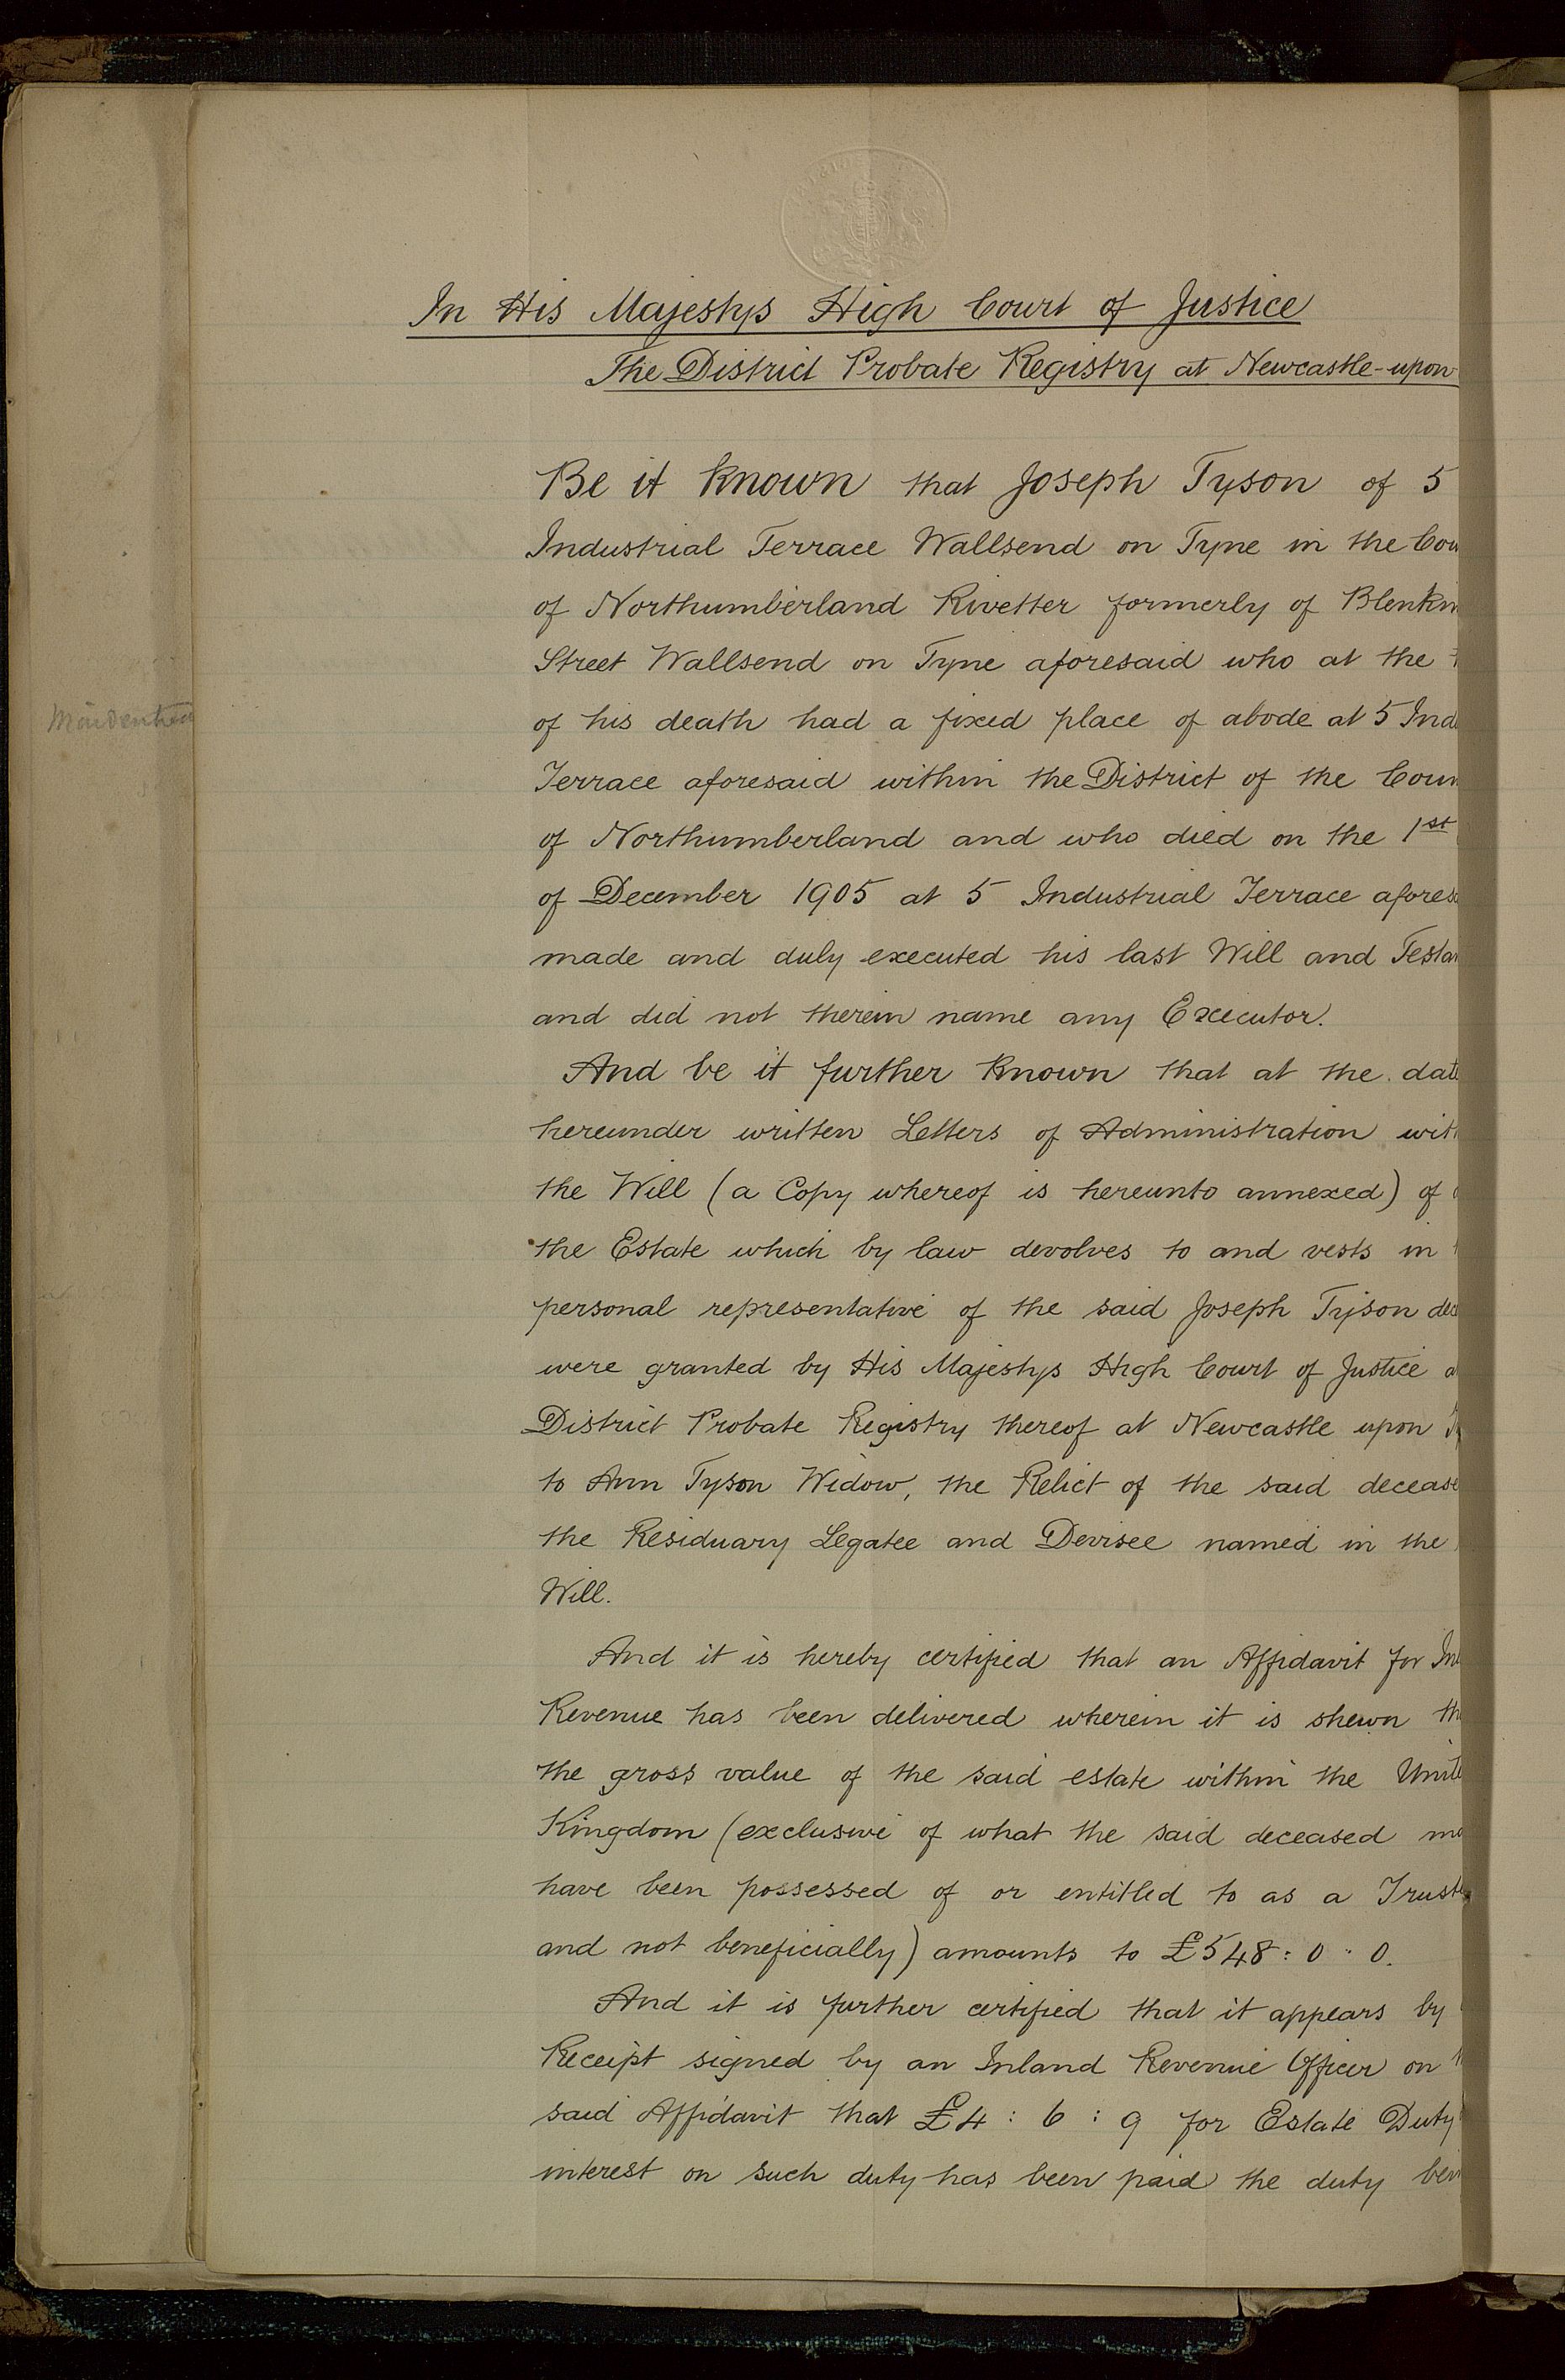 In His Majestys High Court of Justice
The District Probate Registry at Newcastle-upon
Be it known that Joseph Tyson of 5
Industrial Terrace Wallsend on Tyne in the Cou
of Northumberland Rivetter formerly of Blenkin
Street Wallsend on Tyne aforesaid who at the
of his death had a fixed place of abode at 5 Indu
Terrace aforesaid within the District of the Coun
of Northumberland and who died on the 1st
of December 1905 at 5 Industrial Terrace aforesa
made and duly executed his last Will and Testam
and did not therein name any Executor.
And be it further known that at the date
hereunder written Letters of Administration with
the Will (a Copy whereof is hereunto annexed) of
the Estate which by law devolves to and vests in
personal representative of the said Joseph Tyson dec
were granted by His Majestys High Court of Justice a
District Probate Registry thereof at Newcastle upon Ty
to Ann Tyson Widow, the Relict of the said decease
the Residuary Legatee and Devisee named in the
Will.
And it is hereby certified that an Affidavit for Inl
Revenue has been delivered wherein it is shewn th
the gross value of the said estate within the Unite
Kingdom (exclusive of what the said deceased ma
have been possessed of or entitled to as a Truste
and not beneficially) amounts to £548 : 0 : 0.
And it is further certified that it appears by
Receipt signed by an Inland Revenue Officer on
said Affidavit that £4 : 6 : 9 for Estate Duty
interest on such duty has been paid the duty bein